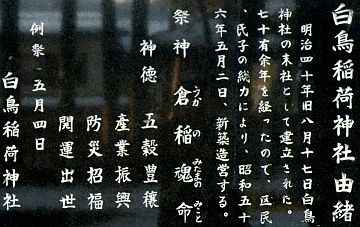 白鳥稲荷神社由緒
明治四十年旧八月十七日白鳥
神社の末社として建立された。
七十有余年を経ったので、区民
、氏子の総力により、昭和五十
六年五月二日、新築造営する。
祭神 倉稲魂命
うかのみたまのみこと
神徳 五穀豊穣
産業振興
防災招福
開運出世
例祭 五月四日
白鳥稲荷神社